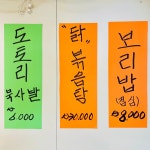 도토리
묵사발
₩8,000
"닭"
볶음탕
₩30,000
보리밥
(점심)
₩8,000